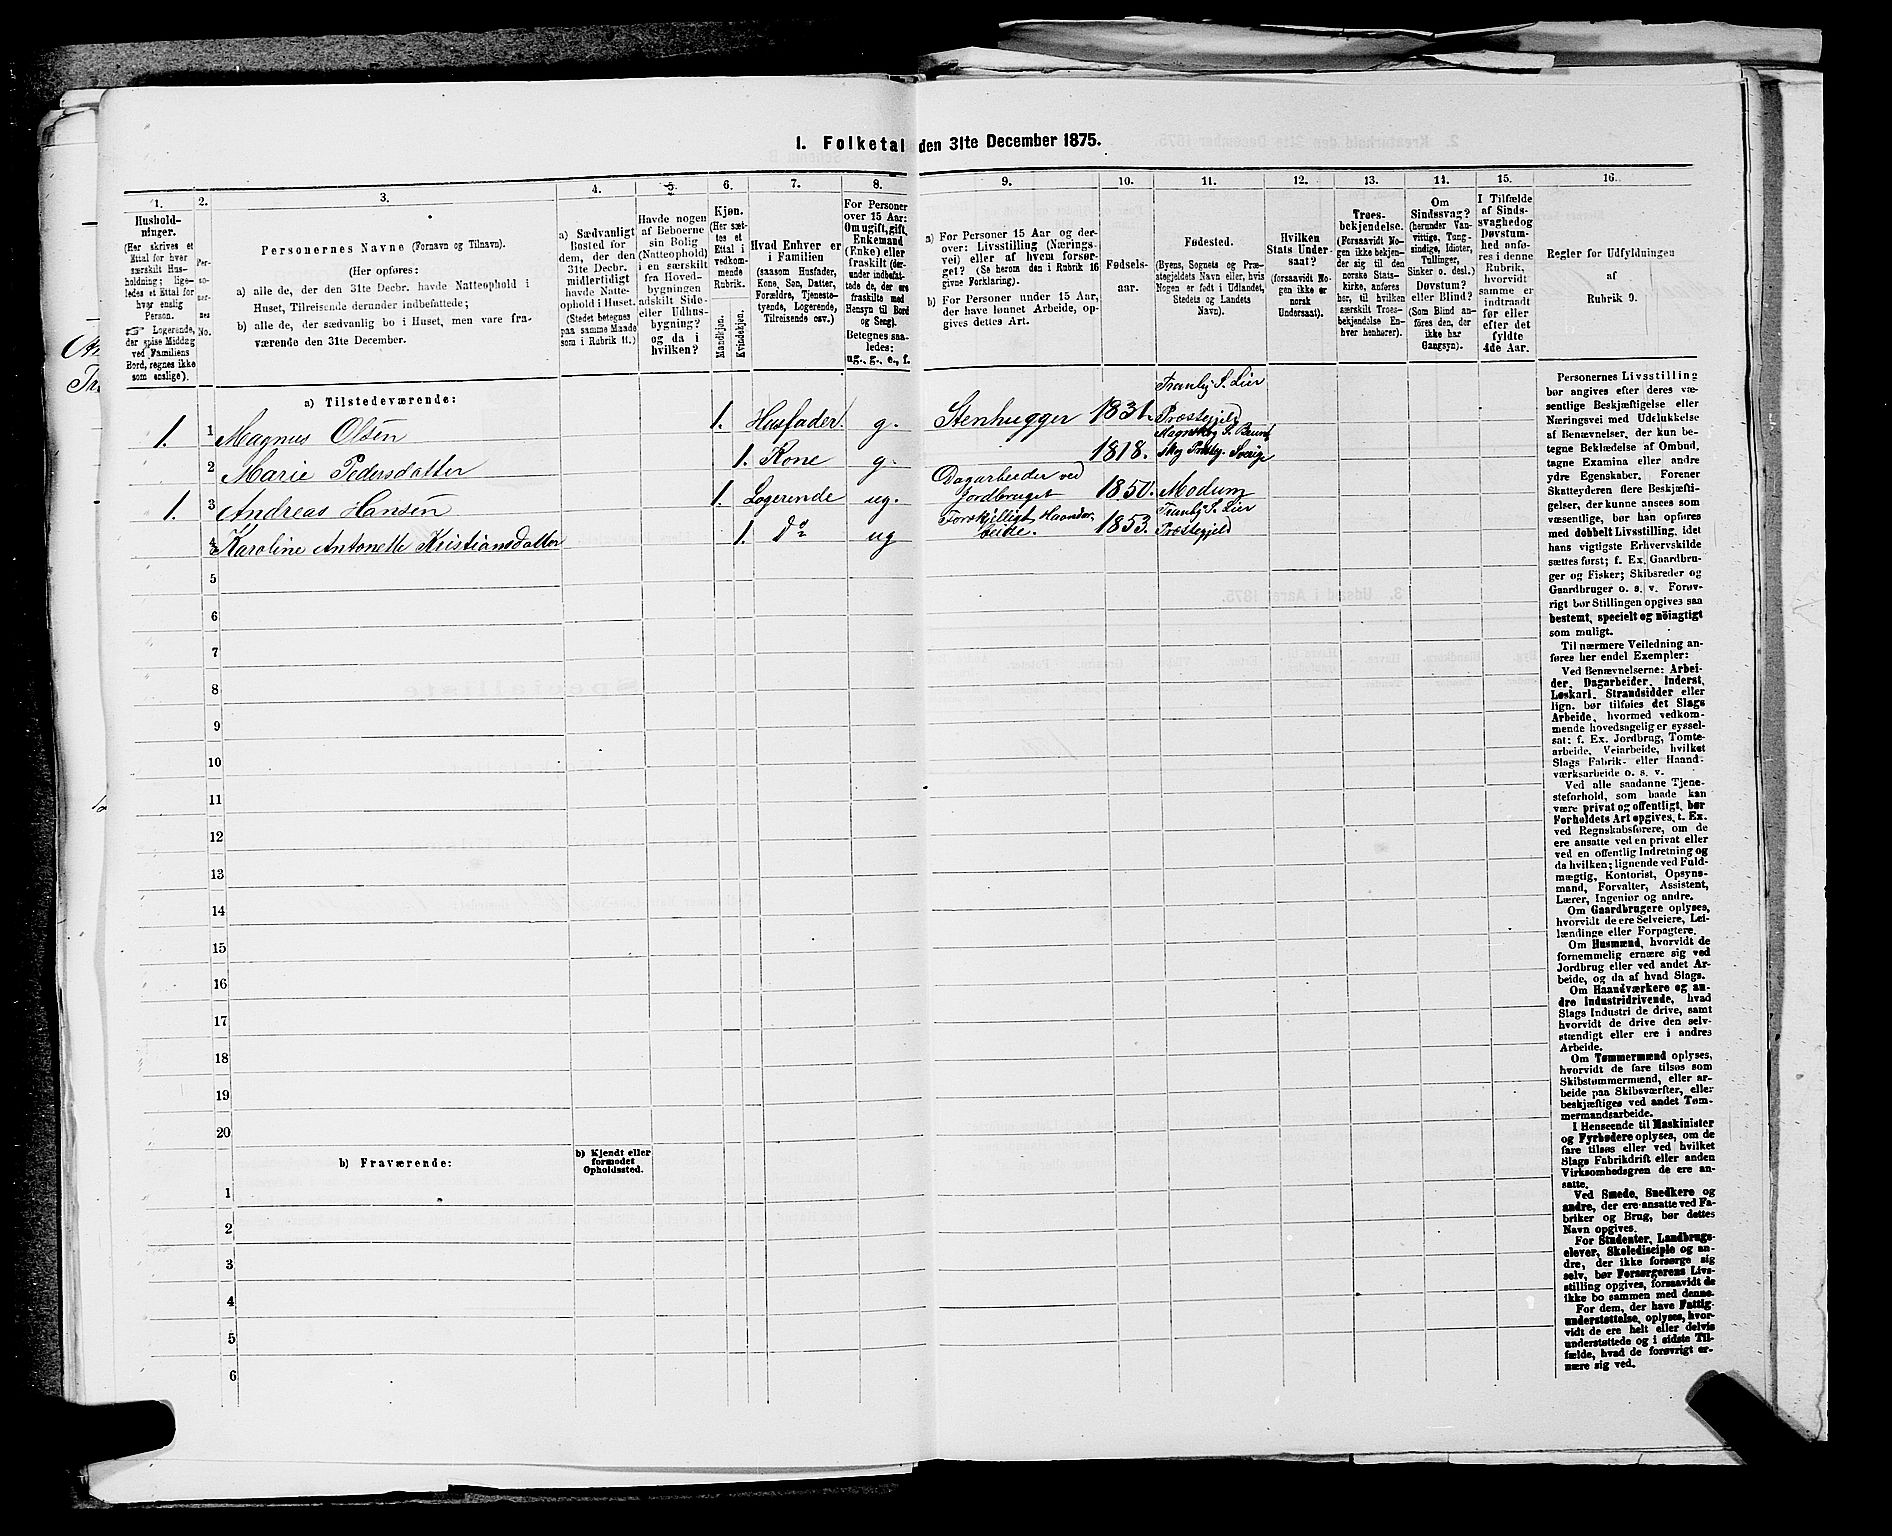 1. Folketal den 31te December 1875.
1.
2.
3.
4.
5.
6.
7.
8.
9.
10.
11.
12.
13.
14.
15.
16.
Hushold-
ninger.
(Her skrives et
Ettal for hver
særskilt Hus-
holdning; lige-
ledes et Ettal for
hver enslig
Person.
☞ Logerende,
der spise Middag
ved Familiens
Bord, regnes ikke
som enslige).
Per-
so-
ner-
nes
No.
Personernes Navne (Fornavn og Tilnavn).
(Her opføres:
a) alle de, der den 31te Decbr. havde Natteophold i
Huset, Tilreisende derunder indbefattede;
b) alle de, der sædvanlig bo i Huset, men vare fra-
værende den 31te December.
a) Sædvanligt
Bosted for
dem, der den
31te Decbr.
midlertidigt
havde Natte-
ophold i Huset.
(Stedet betegnes
paa samme Maade
som i Rubrik 11.)
Havde nogen
af Beboerne
sin Bolig
(Natteophold)
i en særskilt
fra Hoved-
bygningen
adskilt Side-
eller Udhus-
bygning?
og da i
hvilken?
Kjøn.
(Her sæt-
tes et
Ettal i
vedkom-
mende
Rubrik.
Mandkjøn.
Kvindekjøn.
Hvad Enhver er
i Familien
(saasom Husfader,
Kone, Søn, Datter,
Forældre, Tjeneste-
tyende, Logerende,
Tilreisende osv.)
For Personer
over 15 Aar:
Om ugift, gift,
Enkemand
(Enke) eller
fraskilt (der-
under indbefat-
tede de, der ere
fraskilte med
Hensyn til Bord
og Seng).
Betegnes saa-
ledes:
ug., g., e., f.
a) For Personer 15 Aar og der-
over: Livsstilling (Nærings-
vei) eller af hvem forsør-
get? (Se herom den i Rubrik 16
givne Forklaring).
b) For Personer under 15 Aar,
der have lønnet Arbeide, op-
gives dettes Art.
Fødsels-
aar.
Fødested.
(Byens, Sognets og Præ-
stegjeldets Navn eller, hvis
Nogen er født i Udlandet,
Stedets og Landets
Navn).
Hvilken
Stats Under
saat?
(forsaavidt No-
gen ikke er
norsk
Undersaat).
Troes-
bekjendelse.
(Forsaavidt No-
gen ikke bekjen-
der sig til den
norske Stats-
kirke, anføres
her, til hvilken
særskilt Troes-
bekjendelse En-
hver henhører).
Om
Sindssvag?
(herunder Van-
vittige, Tung-
sindige, Idioter,
Tullinger,
Sinker o. desl.)
Døvstum?
eller Blind?
(Som Blind an-
føres den, der
ikke har
Gangsyn).
I Tilfælde
af Sinds-
svaghed og
Døvstum-
hed anfø-
res i denne
Rubrik,
hvorvidt
samme er
indtraadt
før eller
efter det
fyldte
4de Aar.
Regler for Udfyldningen
af
Rubrik 9.
a) Tilstedeværende:
1. 1 Magnus Olsen 1. Husfader. g. Stenhugger 1831. Tranby S. Lier
Præstegjeld
2 Marie Pedersdatter 1. Kone g. 1818.
3 1. Andreas Hansen 1. Logerende ug. Dagarbeider ved
Jordbruget 1850. Modum
4 Karoline Antonette Kristiansdatter 1. Do ug Forskjelligt Haandar-
beide. 1853. Tranby S. Lier
Præstegjeld
5
6
7
8
9
10
11
12
13
14
15
16
17
18
19
20
b) Fraværende:
b) Kjendt eller
formodet
Opholdssted.
1
2
3
4
5
6
Personernes Livsstilling
bør angives efter deres væ-
sentlige Beskjæftigelse eller
Næringsvei med Udelukkelse
af Benævnelser, der kun be-
tegne Beklædelse af Ombud,
tagne Examina eller andre
ydre Egenskaber. Forener
Skatteyderen flere Beskjæfti-
gelser, der kunne ansees som
væsentlige, bør han opføres
med dobbelt Livsstilling, idet
hans vigtigste Erhvervskilde
sættes først; f. Ex. Gaardbru-
ger og Fisker; Skibsreder og
Gaardbruger o. s. v. Forøv-
rigt bør Stillingen opgives saa
bestemt, specielt og nöiagtigt
som muligt.
Til nærmere Veiledning an-
føres her endel Exempler:
Ved Benævnelserne: Arbei-
der, Dagarbeider, Inderst,
Løskarl, Strandsidder eller
lign. bør tilføies det Slags
Arbeide, hvormed vedkom-
mende hovedsagelig er syssel-
sat; f. Ex. Jordbrug, Tomte-
arbeide, Veiarbeide, hvilket
Slags Fabrik- eller Haand-
værksarbeide o. s. v.
Ved alle saadanne Tjene-
steforhold, som baade kan
være privat og offentligt, bør
Forholdets Art opgives, t. Ex.
ved Regnskabsførere, om de
ere ansatte ved en privat eller
ved en offentlig Indretning og
da hvilken; lignende ved Fuld-
mægtig, Kontorist, Opsyns-
mand, Forvalter, Assistent,
Lærer, Ingeniør og andre.
Om Gaardbrugere oplyses,
hvorvidt de ere Selveiere, Lei-
lændinge eller Forpagtere.
Om Husmænd, hvorvidt de
fornemmelig ernære sig ved
Jordbrug eller ved andet Ar-
beide, og da af hvad Slags.
Om Haandværkere og an-
dre Industridrivende, hvad
Slags Industri de drive, samt
hvorvidt de drive den selv-
stændigt eller ere i andres
Arbeide.
Om Tømmermænd oplyses,
hvorvidt de fare tilsøs som
Skibstømmermænd, eller ar-
beide paa Skibsværfter, eller
beskjæftiges ved andet Tøm-
mermandsarbeide.
I Henseende til Maskinister
og Fyrbødere oplyses, om de
fare tilsøs eller ved hvilket
Slags Fabrikdrift eller anden
Virksomhedsgren de ere an-
satte.
Ved Smede, Snedkere og
andre, der ere ansatte ved Fa-
briker og Brug, bør dettes
Navn opgives.
For Studenter, Landbrugs-
elever, Skoledisciple og an-
dre, der ikke forsørge sig
selv, bør Forsørgerens Livs-
stilling opgives, forsaavidt de
ikke bo sammen med denne.
For dem, der have Fattig-
understøttelse, oplyses, hvor-
vidt de ere helt eller delvis
understøttede og i sidste Til-
fælde, hvad de forøvrigt er-
nære sig ved.